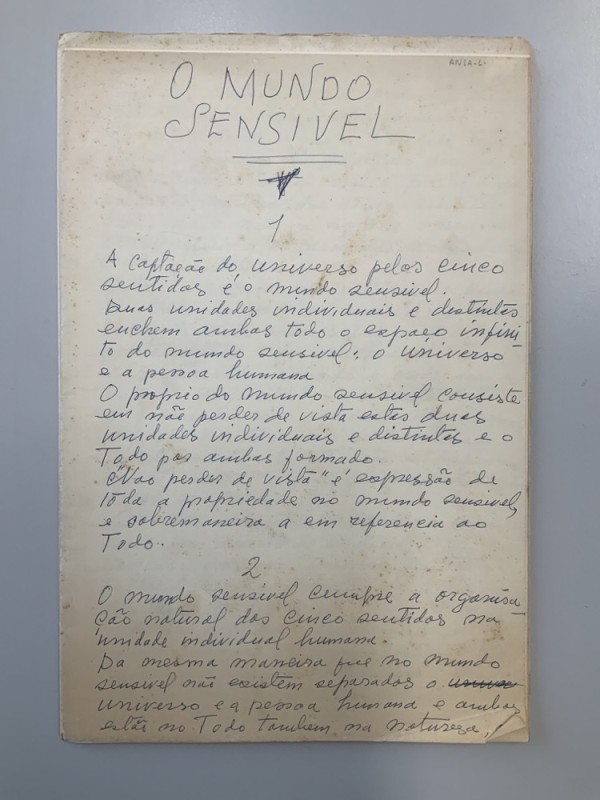 ANSA-L-
O MUNDO
SENSIVEL
1
A captação do universo pelos cinco
sentidos é o mundo sensivel.
Duas unidades individuais e distintas
enchem ambas todo o espaço infini-
to do mundo sensivel: o universo
e a pessoa humana
O proprio do mundo sensivel consiste
em não perder de vista estas duas
unidades individuais e distintas e o
Todo por ambas formado.
"Não perder de vista" é expressão de
toda a propriedade no mundo sensivel,
e sobremaneira a em referencia ao
Todo.
2
O mundo sensivel cumpre a organisa-
ção natural dos cinco sentidos na
unidade individual humana.
Da mesma maneira que no mundo
sensivel não existem separados o
universo e a pessoa humana e ambos
estão no Todo tambem na natureza,